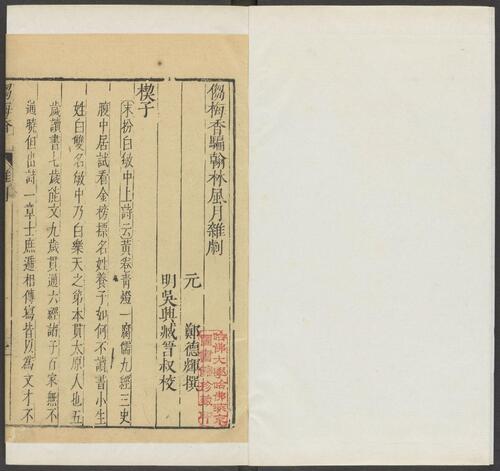 㑳梅香騙翰林風月雜劇
元 鄭德輝撰
明吳興臧晉叔校
楔子
末扮白敏中上詩云黃卷青燈一腐儒九經三史
腹中居試看金榜標名姓養子如何不讀書小生
姓白雙名敏中乃白樂天之弟本貫太原人也五
歲讀書七歲能文九歲貫通六經諸子百家無不
通曉但出詩一章士庶遞相傳寫皆以爲文才不
㑳梅香
雜劇
一
哈佛大學哈佛燕京
圖書館珍藏印